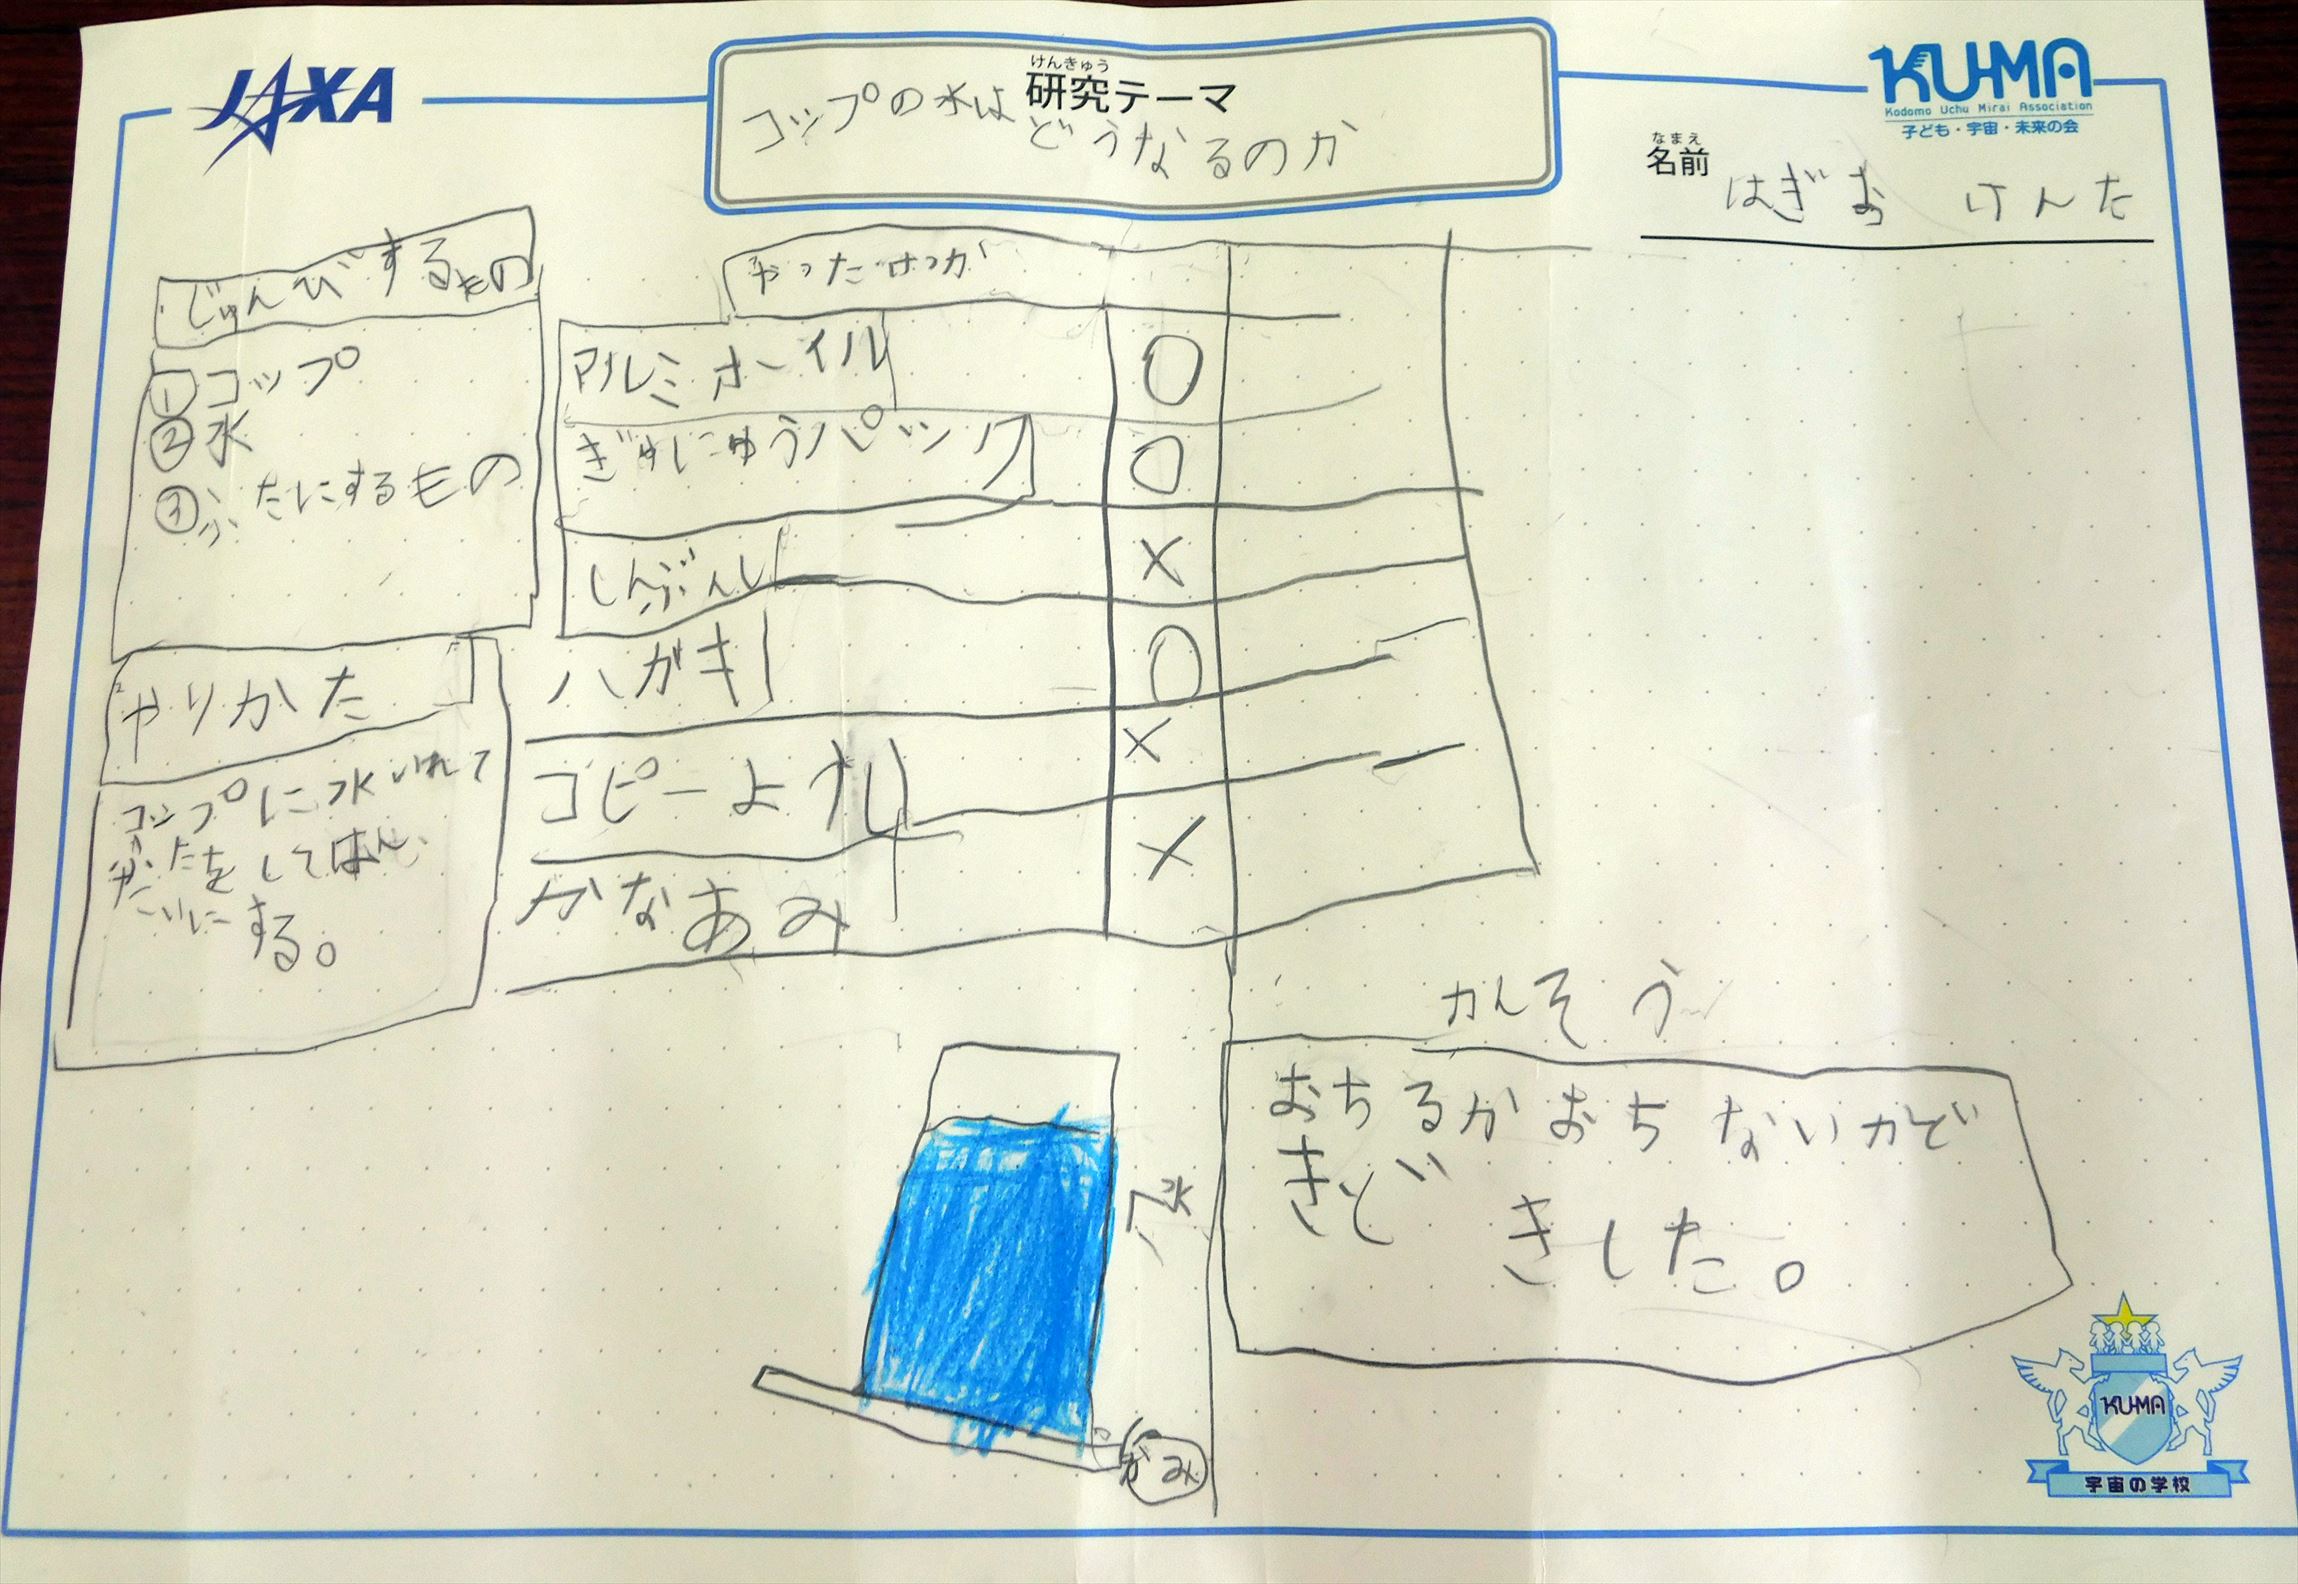 JAXA
けんきゅう
研究テーマ
コップの水はどうなるのか
KUMA
Kodomo Uchu Mirai Association
子ども・宇宙・未来の会
なまえ
名前
はぎお けんた
じゅんびするもの
①コップ
②水
③ふたにするもの
やりかた
コップに水いれて
ふたをしてはん
たいにする。
やったけっか
アルミホイル ○
ぎゅにゅうパック ○
しんぶんし ×
ハガキ ○
コピーよう ×
かなあみ ×
水
かみ
かんそう
おちるかおちないかど
きど
きした。
KUMA
宇宙の学校